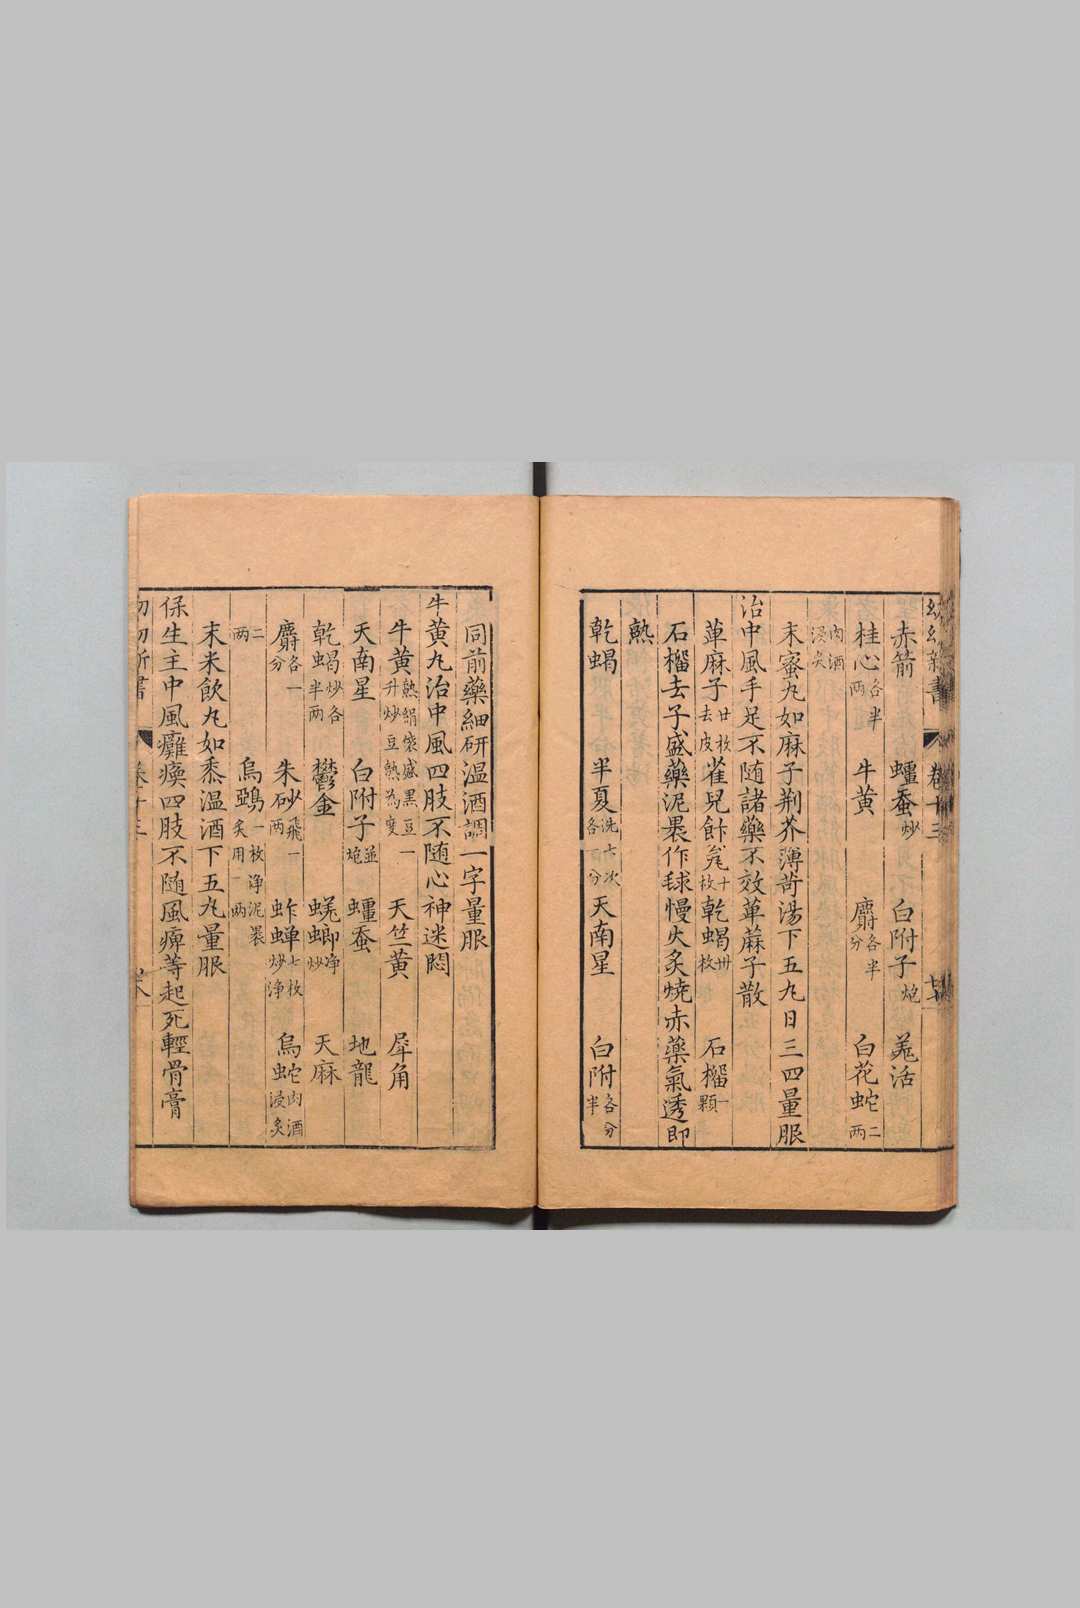 幼幼新書 卷十三
赤箭 殭蚕炒 白附子炮 羌活
桂心各半两 牛黃 麝各半分 白花蛇二两
肉酒浸炙
末蜜丸如麻子荆芥薄荷湯下五丸日三四量服
治中風手足不随諸藥不效萆麻子散
萆麻子廿枚去皮 雀兒飰瓮十枚 乾蝎卅枚 石榴一顆
石榴去子盛藥泥裹作毬慢火炙燒赤藥氣透即
熟
乾蝎 半夏洗七次各一分 天南星 白附各半分
同前藥細研温酒調一字量服
牛黃丸治中風四肢不随心神迷悶
牛黃熟絹袋盛黑豆一升炒豆熟為度 天竺黃 犀角
天南星 白附子並炮 殭蚕 地龍
乾蝎炒各半两 鬱金 蜣螂净炒 天麻
麝各一分 朱砂飛一两 蚱蝉七枚炒净 烏蛇肉酒浸炙
二两 烏鵶一枚净泥裹炙用一两
末米飲丸如黍温酒下五丸量服
保生主中風癱瘓四肢不随風痺等起死輕骨膏
幼幼新書 卷十三